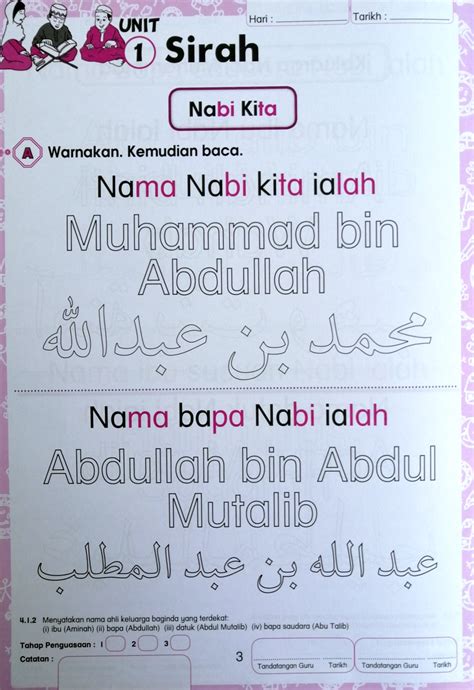 UNIT
1 Sirah
Hari : Tarikh :
Nabi Kita
A Warnakan. Kemudian baca.
Nama Nabi kita ialah
Muhammad bin
Abdullah
محمد بن عبدالله
Nama bapa Nabi ialah
Abdullah bin Abdul
Mutalib
عبد الله بن عبد المطلب
4.1.2 Menyatakan nama ahli keluarga baginda yang terdekat:
(i) ibu (Aminah) (ii) bapa (Abdullah) (iii) datuk (Abdul Mutalib) (iv) bapa saudara (Abu Talib)
Tahap Penguasaan : 1 2 3
Catatan :
3
Tandatangan Guru Tarikh Tandatangan Guru Tarikh